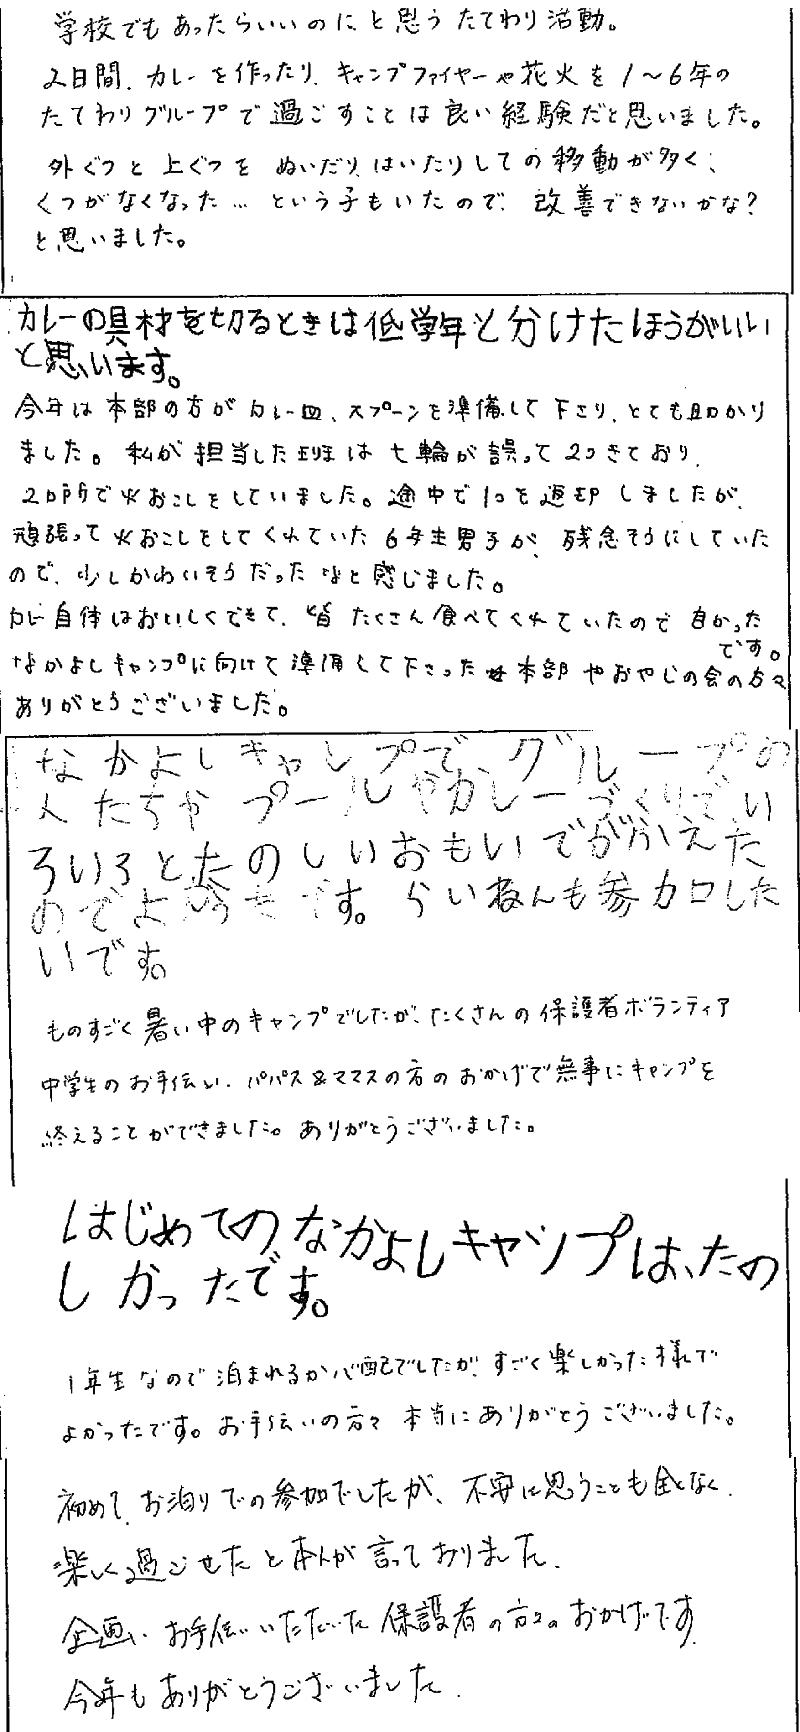 学校でもあったらいいのにと思うたてわり活動。
2日間、カレーを作ったり、キャンプファイヤーや花火を1〜6年の
たてわりグループで過ごすことは良い経験だと思いました。
外ぐつと上ぐつをぬいだりはいたりしての移動が多く、
くつがなくなった…という子もいたので、改善できないかな?
と思いました。
カレーの具材を切るときは低学年と分けたほうがいい
と思います。
今年は本部の方がカレー皿、スプーンを準備して下さり、とても助かり
ました。私が担当した班は七輪が誤って2つきており、
2ヵ所で火おこしをしていました。途中で1つを返却しましたが、
頑張って火おこしをしてくれていた6年生男子が、残念そうにしていた
ので、少しかわいそうだったなと感じました。
カレー自体はおいしくできて、皆たくさん食べてくれていたので良かった
です。
なかよしキャンプに向けて準備して下さった本部やおやじの会の方々
ありがとうございました。
なかよしキャンプで、グループの
人たちやプールやカレーづくりでい
ろいろとたのしいおもいでがかえた
のでよかったです。らいねんも参加した
いです。
ものすごく暑い中のキャンプでしたが、たくさんの保護者ボランティア
中学生のお手伝い、パパス&ママスの方のおかげで無事にキャンプを
終えることができました。ありがとうございました。
はじめてのなかよしキャンプは、たの
しかったです。
1年生なので泊まれるか心配でしたが、すごく楽しかった様で
よかったです。お手伝いの方々本当にありがとうございました。
初めて、お泊りでの参加でしたが、不安に思うことも全くなく、
楽しく過ごせたと本人が言っておりました。
企画、お手伝いいただいた保護者の方々のおかげです。
今年もありがとうございました。